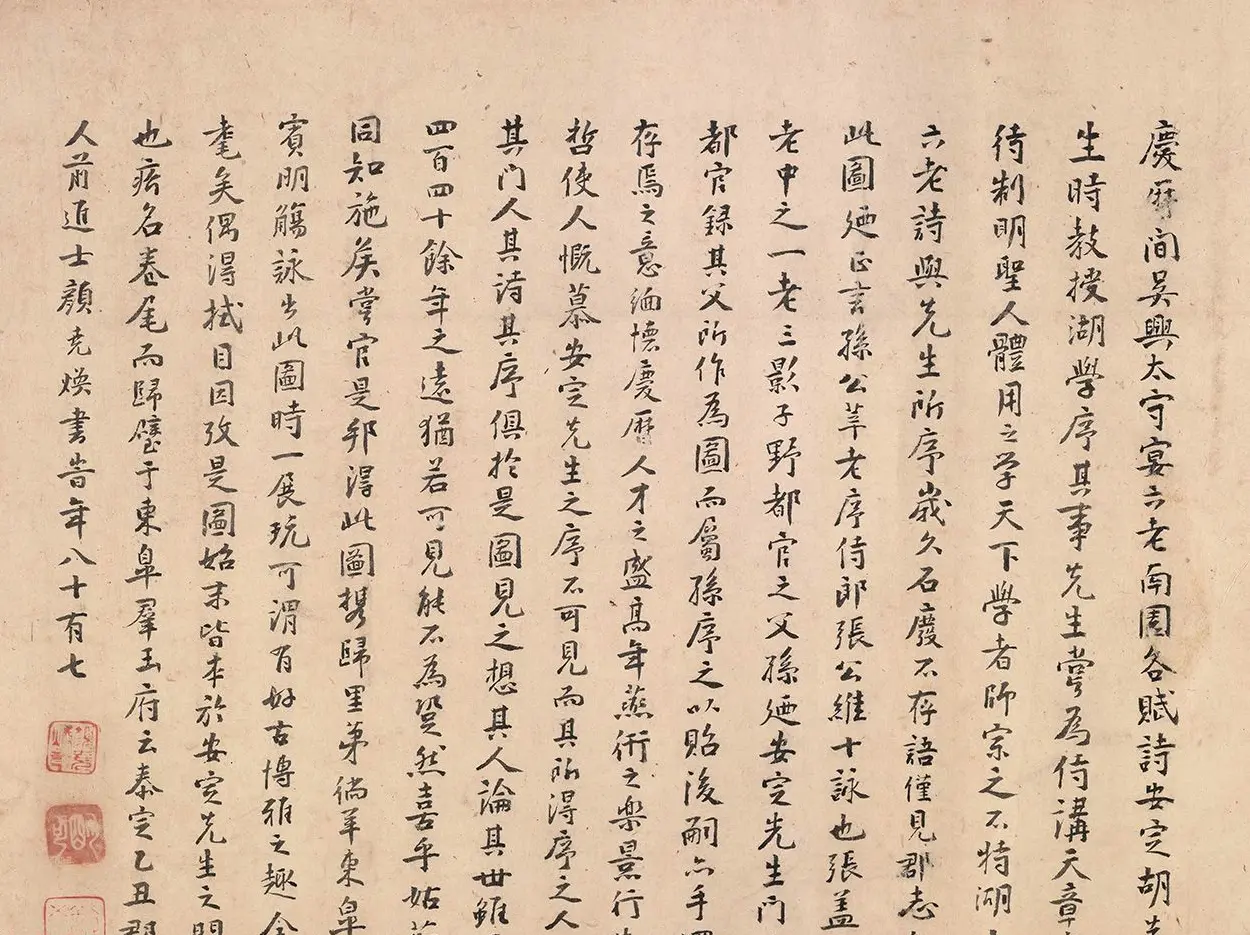 慶曆間吳興太守宴六老南園各賦詩安定胡先
生時教授湖學序其事先生嘗為侍講天章
待制明聖人體用之学天下學者師宗之不特湖
六老詩與先生所序歲久石廢不存語僅見郡志
此圖廼正言孫公莘老序侍郎張公維十詠也張盖
老中之一老三影子野都官之父孫廼安定先生門
都官録其父所作為圖而屬孫序之以貽後嗣亦手
存焉之意緬懷慶曆人才之盛高年燕衎之樂景行
哲使人慨慕安定先生之序不可見而其所得序之人
其门人其诗其序俱於是圖見之想其人論其世雖
四百四十餘年之遠猶若可見能不為興然喜乎姑蘇
同知施矦嘗官是邦得此圖携歸里第徜羊東皐
賓朋觴詠出此圖時一展玩可謂有好古博雅之趣今
耄矣偶得拭目因攷是圖始末皆本於安定先生之門
也痞名巻尾而歸璧于東皐羣玉府云泰定乙丑郡
人前進士顏堯煥書旹年八十有七